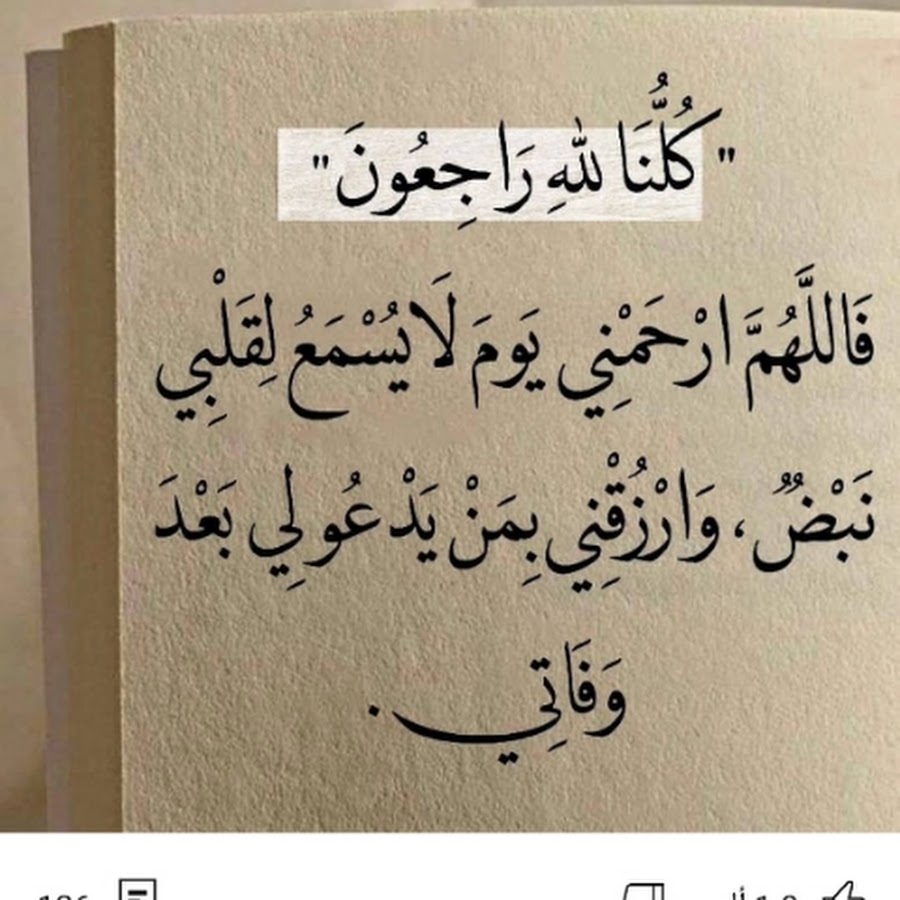 " كُلُّنَا لله رَاجِعُونَ "
فَاللَّهُمَّ ارْحَمْنِي يَومَ لَا يُسْمَعُ لِقَلْبِي
نَبْضٌ ، وَارْزُقْنِي بِمَنْ يَدْعُو لِي بَعْدَ
وَفَاتِي .